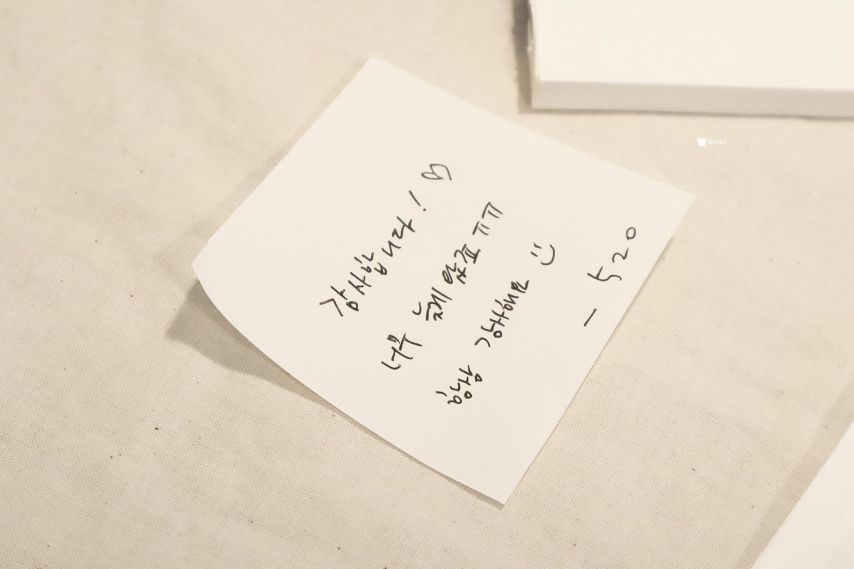 감사합니다! ♡
너무 늦게 왔죠 ㅠㅠ
항상 감사해요 :)
- 520